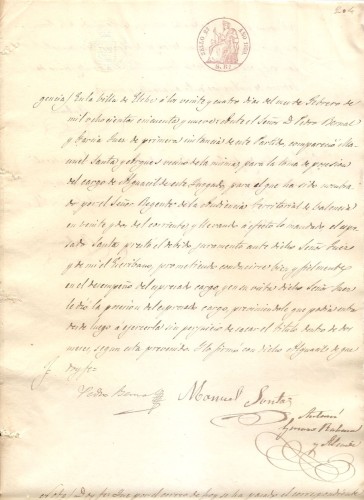 204
SELLO 9º AÑO 1859
gencia / En la villa de Elche á los veinte y cuatro dias del mes de Febrero de
mil ochocientos cincuenta y nueve: Ante el Señor D. Pedro Bernal
y García Juez de primera instancia de este Partido, compareció Ma
nuel Santa y vecino de la misma, para la toma de posesion
del cargo de Alguacil de este Juzgado, para el que ha sido nombra
do por el Señor Regente de la Audiencia territorial de Valencia
en veinte y dos del corriente; y llevando á efecto lo mandado el espre
sado Santa, prestó el debido juramento ante dicho Señor Juez
y de mi el Escribano, prometiendo conducirse bien y fielmente
en el desempeño del espresado cargo, y en su vista dicho Señor Juez
le dió la posesion del espresado cargo, previniéndole que podia entrar
desde luego á ejercerlo sin perjuicio de sacar el titulo dentro de dos
meses, segun está prevenido. Y lo firmó con dicho de que
doy fe
Pedro Bernal
Manuel Santa
Antoni
y